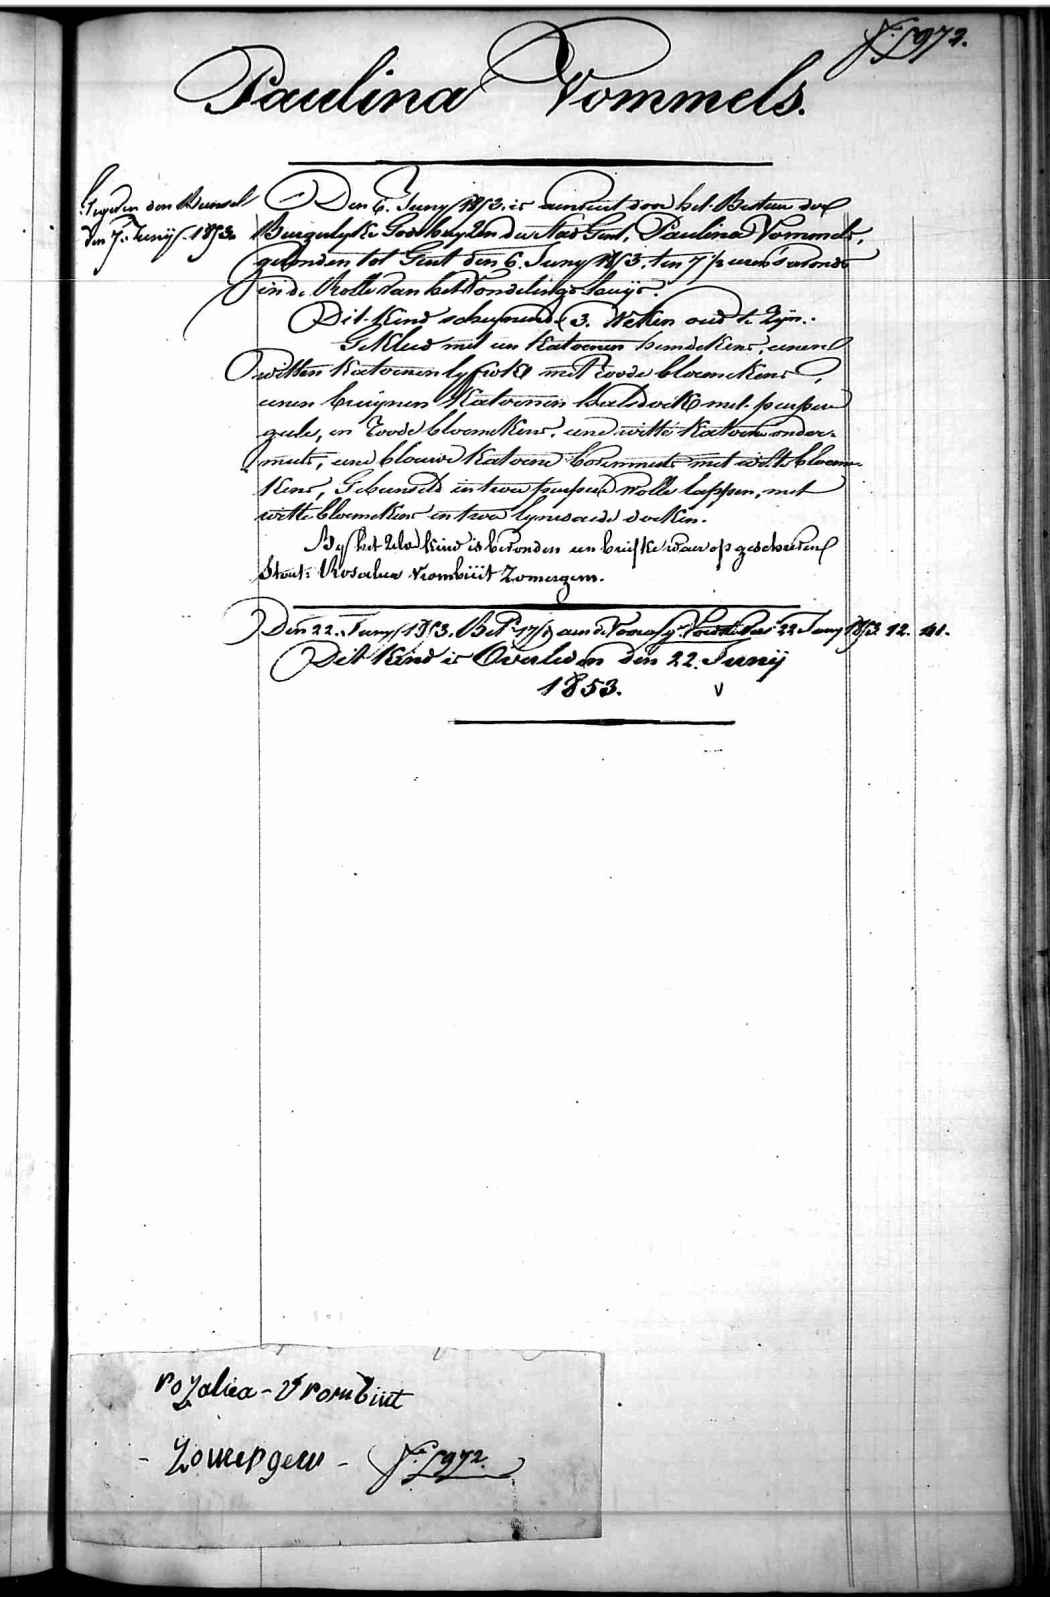 F° 5972.
Paulina Vommels.
den Bussel
den 7. Junij 1853.
Den 6. Juny 1853. is aenveird door het Bestuer der
Burgerlyke Godshuyzen der Stad Gent, Paulina Vommels,
gevonden tot Gent den 6. Juny 1853. ten 7 1/2 uren s'avonds
in de Rolle van het Vondelings huijs.
Dit Kind schynende 3. Weken oud te Zyn.
Gekleed met een Katoenen hemdeken, eenen
witten Katoenen lyfrok met roode bloemekens,
eenen bruijnen Katoenen halsdoek met purper
geele, en roode bloemekens, eene witte Katoene onder-
muts, eene blouwe Katoene bovenmuts met witte bloeme-
kens, Gebunseld in twee purpere wolle lappen, met
witte bloemekens en twee lynwaede doeken.
By het zelve kind is bevonden een briefke waer op geschreven
Stont: Rosalua Vrombiüt Zomergem.
Den 22. Juny 1853. Bet. 17/ aen de 22 Juny 1853. 12. 41.
Dit Kind is Overleden den 22. Junij
1853. v
rozaliea - Vrombiüt
- Zomergem - F° 5972.